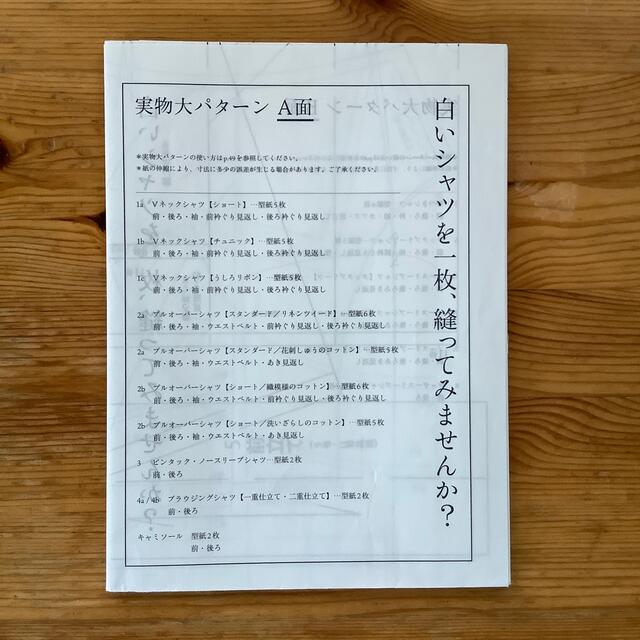 白いシャツを一枚、縫ってみませんか？
実物大パターン A面
＊実物大パターンの使い方はp.49を参照してください。
＊紙の伸縮により、寸法に多少の誤差が生じる場合があります。ご了承ください。
1a Vネックシャツ【ショート】…型紙5枚
前・後ろ・袖・前衿ぐり見返し・後ろ衿ぐり見返し
1b Vネックシャツ【チュニック】…型紙5枚
前・後ろ・袖・前衿ぐり見返し・後ろ衿ぐり見返し
1c Vネックシャツ【うしろリボン】…型紙5枚
前・後ろ・袖・前衿ぐり見返し・後ろ衿ぐり見返し
2a プルオーバーシャツ【スタンダード／リネンツイード】…型紙6枚
前・後ろ・袖・ウエストベルト・前衿ぐり見返し・後ろ衿ぐり見返し
2a プルオーバーシャツ【スタンダード／花刺しゅうのコットン】…型紙5枚
前・後ろ・袖・ウエストベルト・あき見返し
2b プルオーバーシャツ【ショート／織模様のコットン】…型紙6枚
前・後ろ・袖・ウエストベルト・前衿ぐり見返し・後ろ衿ぐり見返し
2b プルオーバーシャツ【ショート／洗いざらしのコットン】…型紙5枚
前・後ろ・袖・ウエストベルト・あき見返し
3 ピンタック・ノースリーブシャツ…型紙2枚
前・後ろ
4a / 4b ブラウジングシャツ【一重仕立て・二重仕立て】…型紙2枚
前・後ろ
キャミソール 型紙2枚
前・後ろ